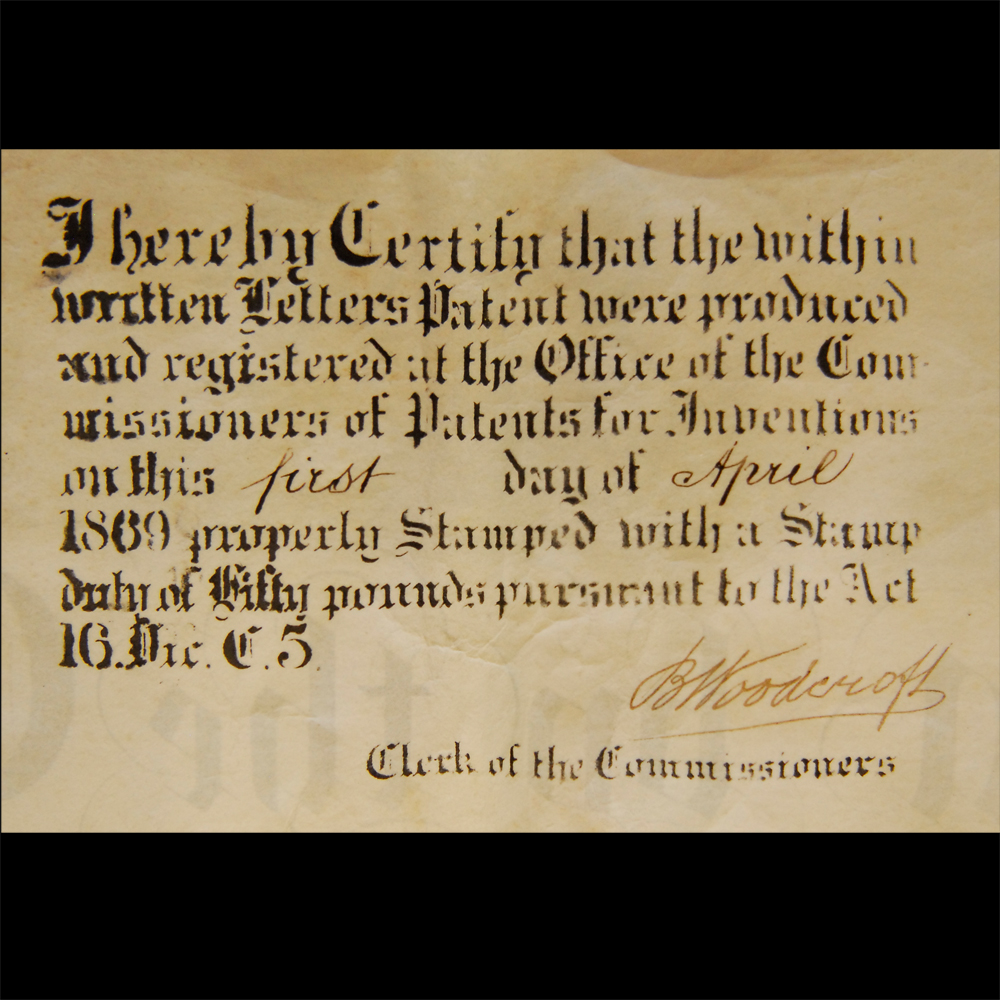 I hereby Certify that the within
written Letters Patent were produced
and registered at the Office of the Com-
missioners of Patents for Inventions
on this first day of April
1869 properly Stamped with a Stamp
duty of Fifty pounds pursuant to the Act
16. Vic. C. 5.
B Woodcroft
Clerk of the Commissioners